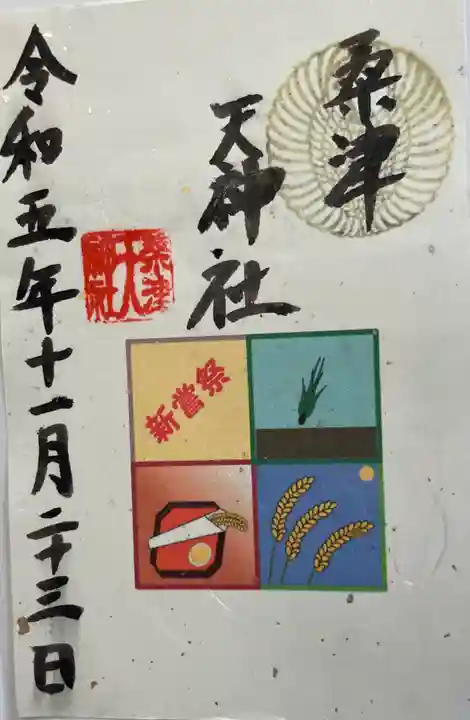 粟津
天神社
粟津
天
神社
新嘗祭
令和五年十一月二十三日